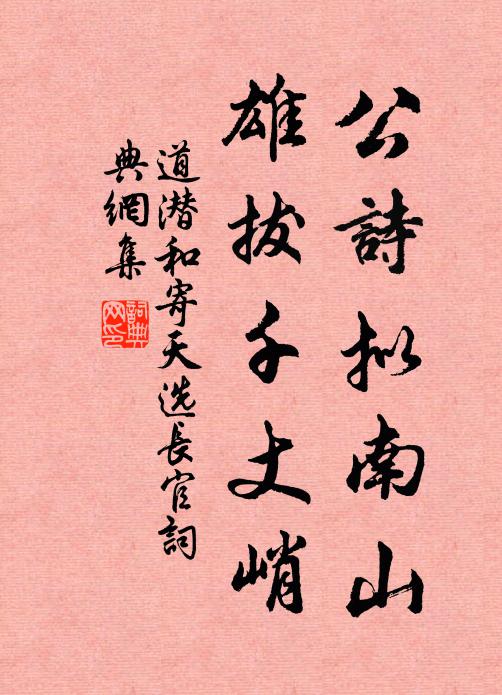 公詩拟南山
雄拔千丈峭
道潜和寄天选長官詞
典網集
詞典网印